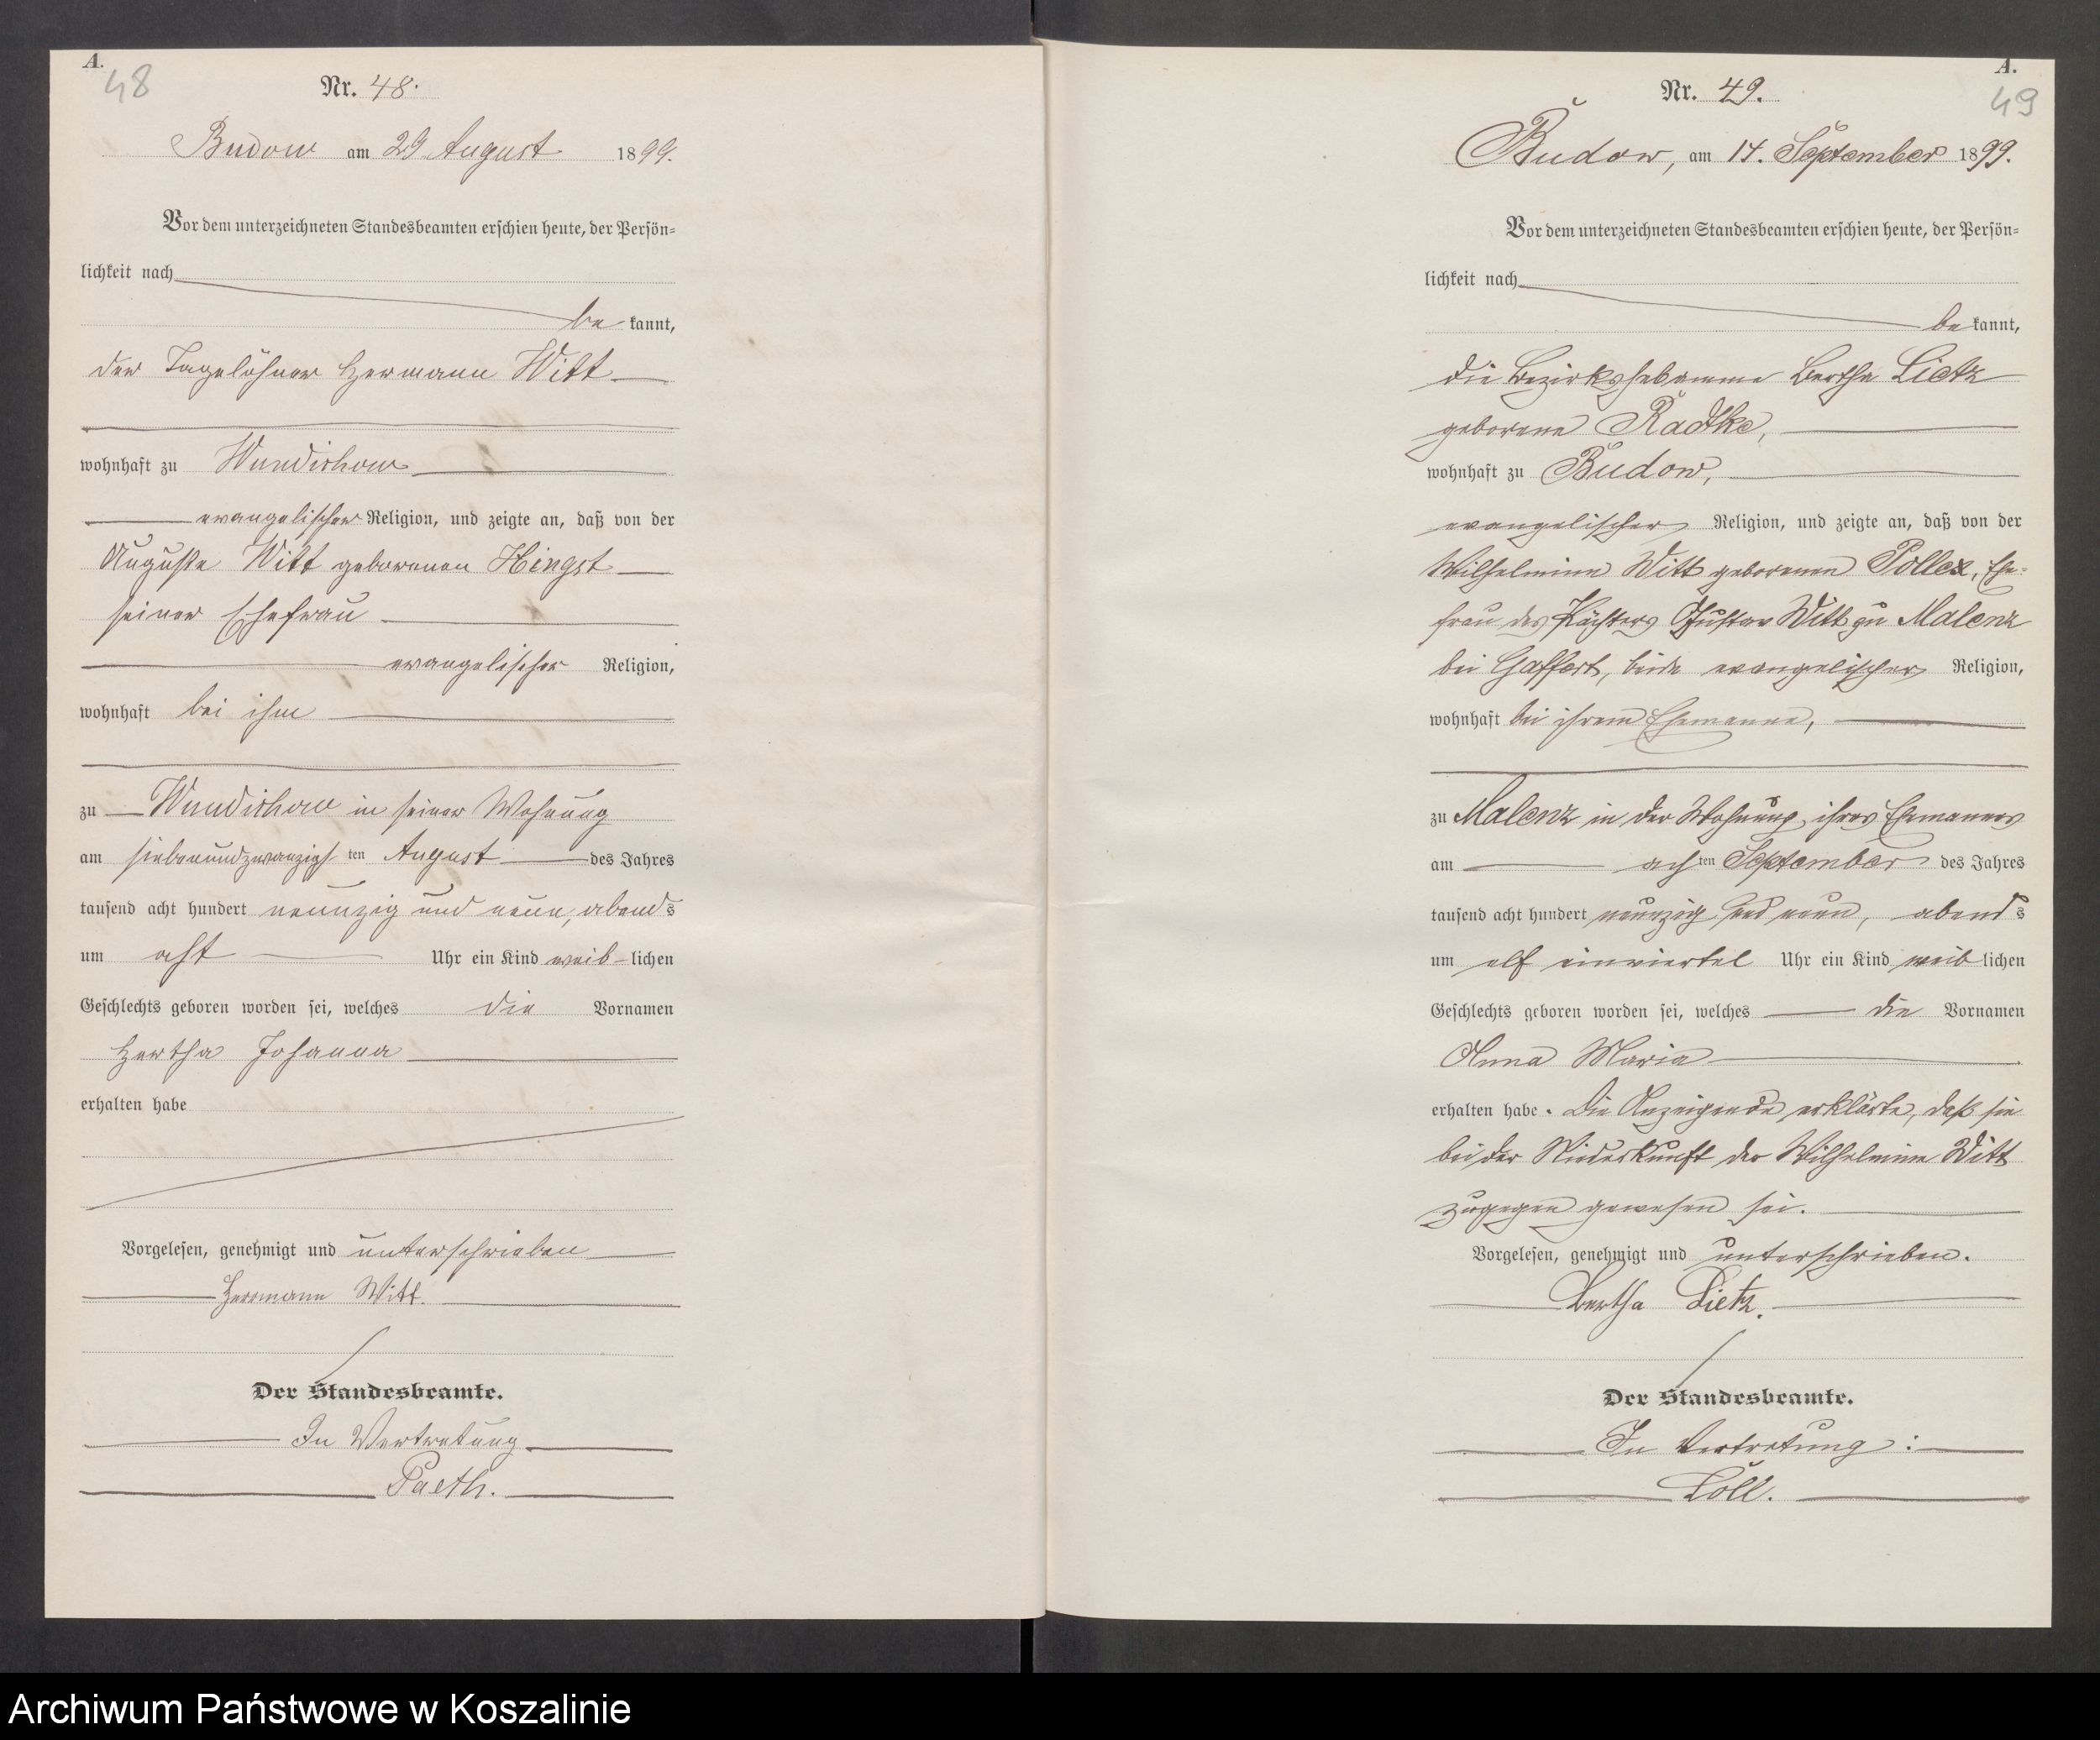 A.
48
Nr. 48.
Budow am 29 August 1899.
Vor dem unterzeichneten Standesbeamten erschien heute, der Persön-
lichkeit nach
be kannt,
der Tagelöhner Hermann Witt
wohnhaft zu Wundichow
evangelischer Religion, und zeigte an, daß von der
Auguste Witt geborenen Hingst
seiner Ehefrau
evangelischer Religion,
wohnhaft bei ihm
zu Wundichow in seiner Wohnung
am siebenundzwanzigsten August des Jahres
tausend acht hundert neunzig und neun, abends
um acht Uhr ein Kind weib-lichen
Geschlechts geboren worden sei, welches die Vornamen
Hertha Johanna
erhalten habe
Vorgelesen, genehmigt und unterschrieben
Herrmann Witt.
Der Standesbeamte.
In Vertretung
Paeth.
A.
49
Nr. 49.
Budow, am 14. September 1899.
Vor dem unterzeichneten Standesbeamten erschien heute, der Persön-
lichkeit nach
be kannt,
die Bezirkshebamme Bertha Lietz
geborene Radtke,
wohnhaft zu Budow,
evangelischer Religion, und zeigte an, daß von der
Wilhelmine Witt geborenen Pollex, Ehe-
frau des Pächters Gustav Witt zu Malenz
bei Gaffert, beide evangelischer Religion,
wohnhaft bei ihrem Ehemanne,
zu Malenz in der Wohnung ihres Ehemannes
am achten September des Jahres
tausend acht hundert neunzig und neun, abends
um elf einviertel Uhr ein Kind weiblichen
Geschlechts geboren worden sei, welches die Vornamen
Anna Maria
erhalten habe. Die Anzeigende erklärte, daß sie
bei der Niederkunft der Wilhelmine Witt
zugegen gewesen sei.
Vorgelesen, genehmigt und unterschrieben.
Bertha Lietz.
Der Standesbeamte.
In Vertretung:
Löll.
Archiwum Państwowe w Koszalinie